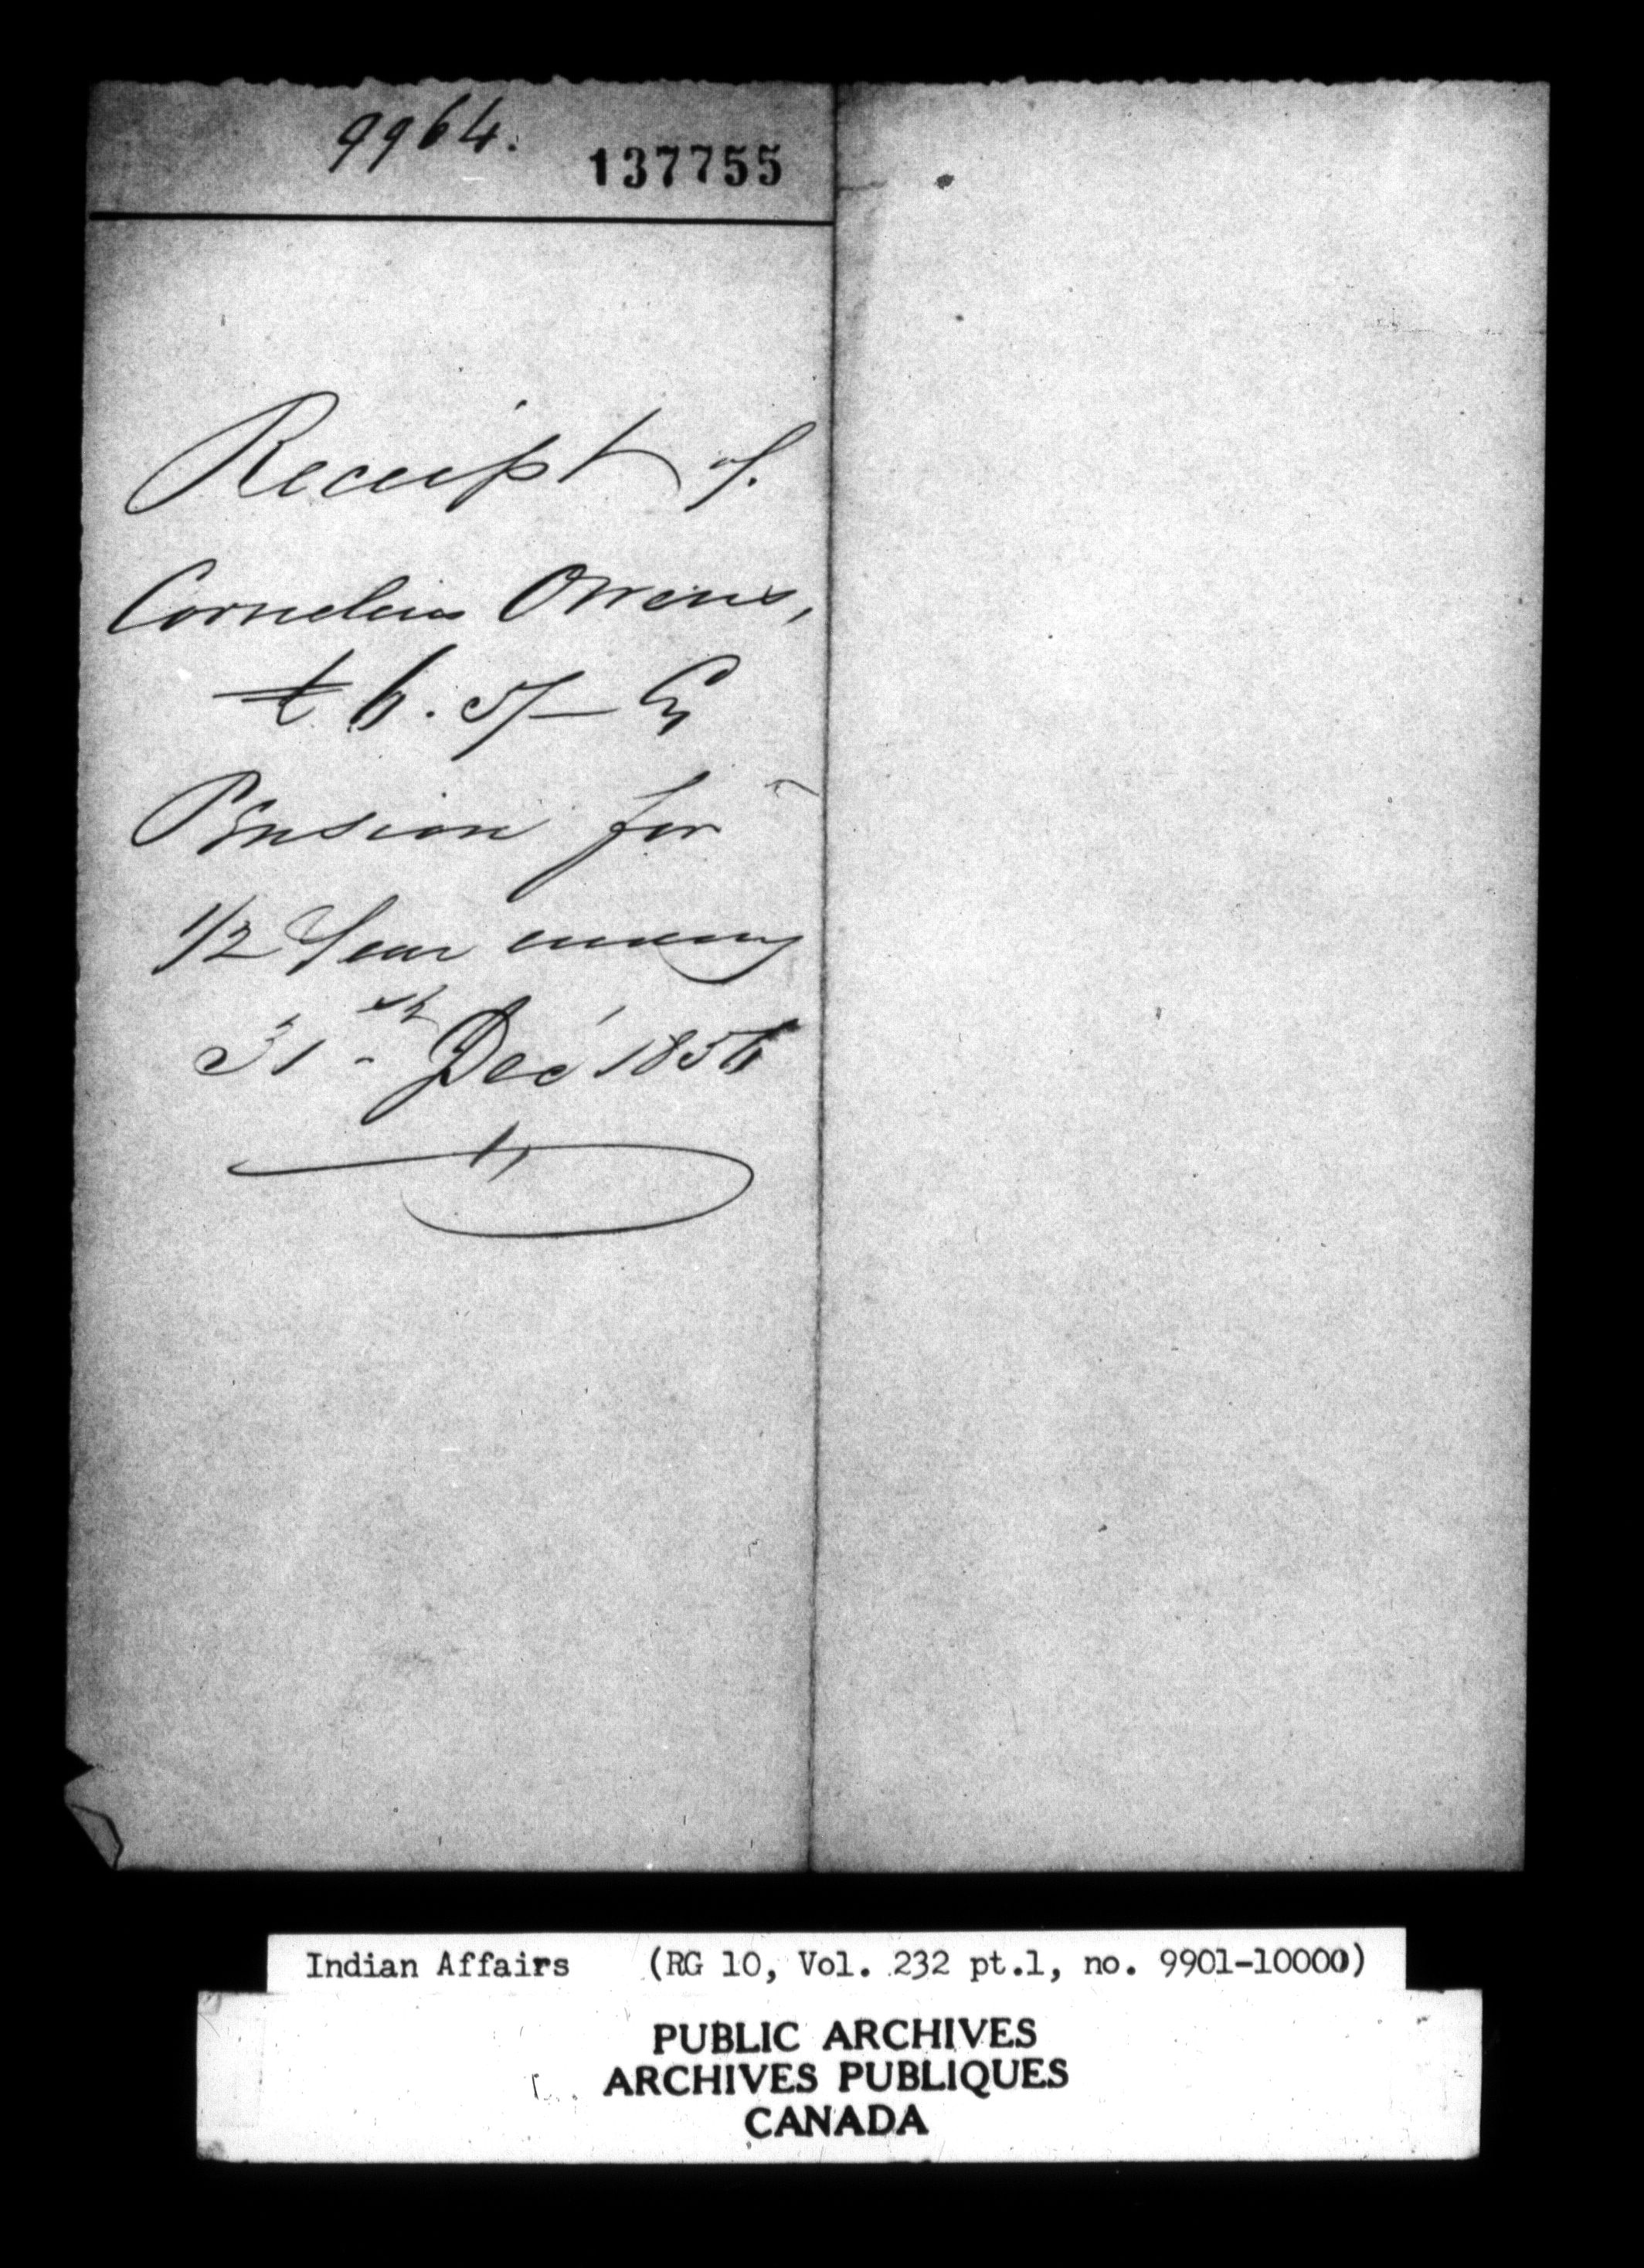 9964.
137755
Receipt of
Cornelius Owens,
£ 6. 5/— Cy
Pension for
1/2 Year ending
31st Dec 1856
Indian Affairs (RG 10, Vol. 232 pt.1, no. 9901-10000)
PUBLIC ARCHIVES
ARCHIVES PUBLIQUES
CANADA